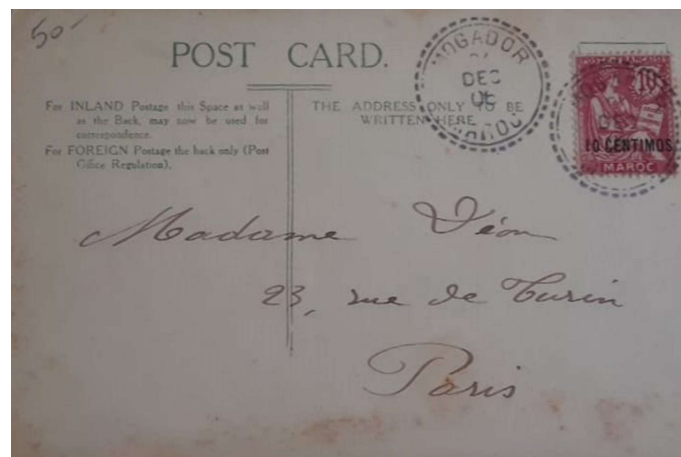 50-
POST CARD.
For INLAND Postage this Space as well
as the Back, may now be used for
correspondence.
For FOREIGN Postage the back only (Post
Office Regulation).
THE ADDRESS ONLY TO BE
WRITTEN HERE
MOGADOR
DEC
MAROC
10
10 CENTIMOS
MAROC
Madame Léon
23, rue de Turin
Paris